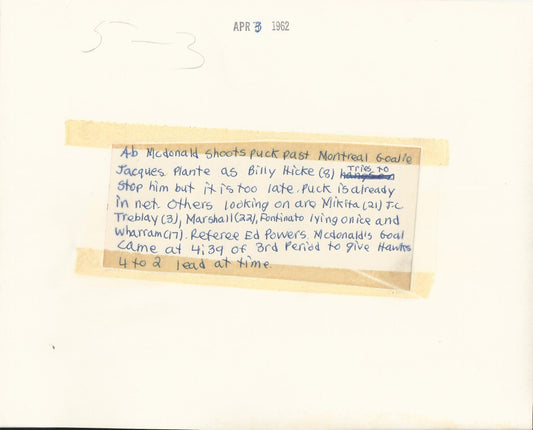 APR 3 1962
5-3
Ab Mcdonald shoots puck past Montreal Goalie
Jacques Plante as Billy Hicke (8) tries to
stop him but it is too late. Puck is already
in net. Others looking on are Mikita (21) J.C
Treblay (3), Marshall (22), Fontinato lying on ice and
Wharram (17). Referee Ed Powers. Mcdonald's Goal
came at 4:39 of 3rd Period to give Hawks
4 to 2 lead at time.